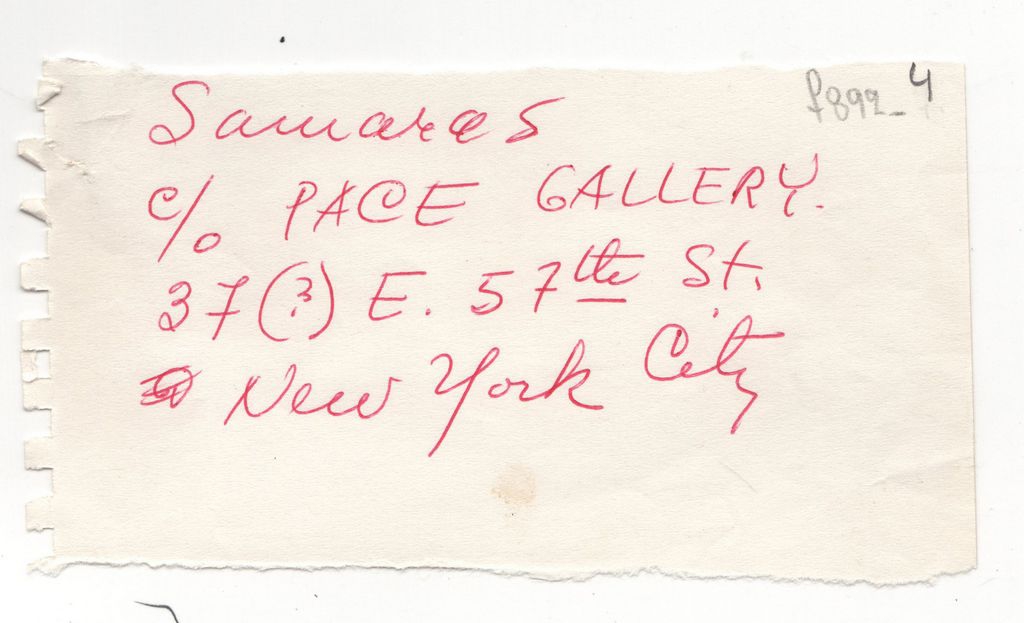 f892_4
Samaras
c/o PACE GALLERY.
37(?) E. 57th St.
New York City